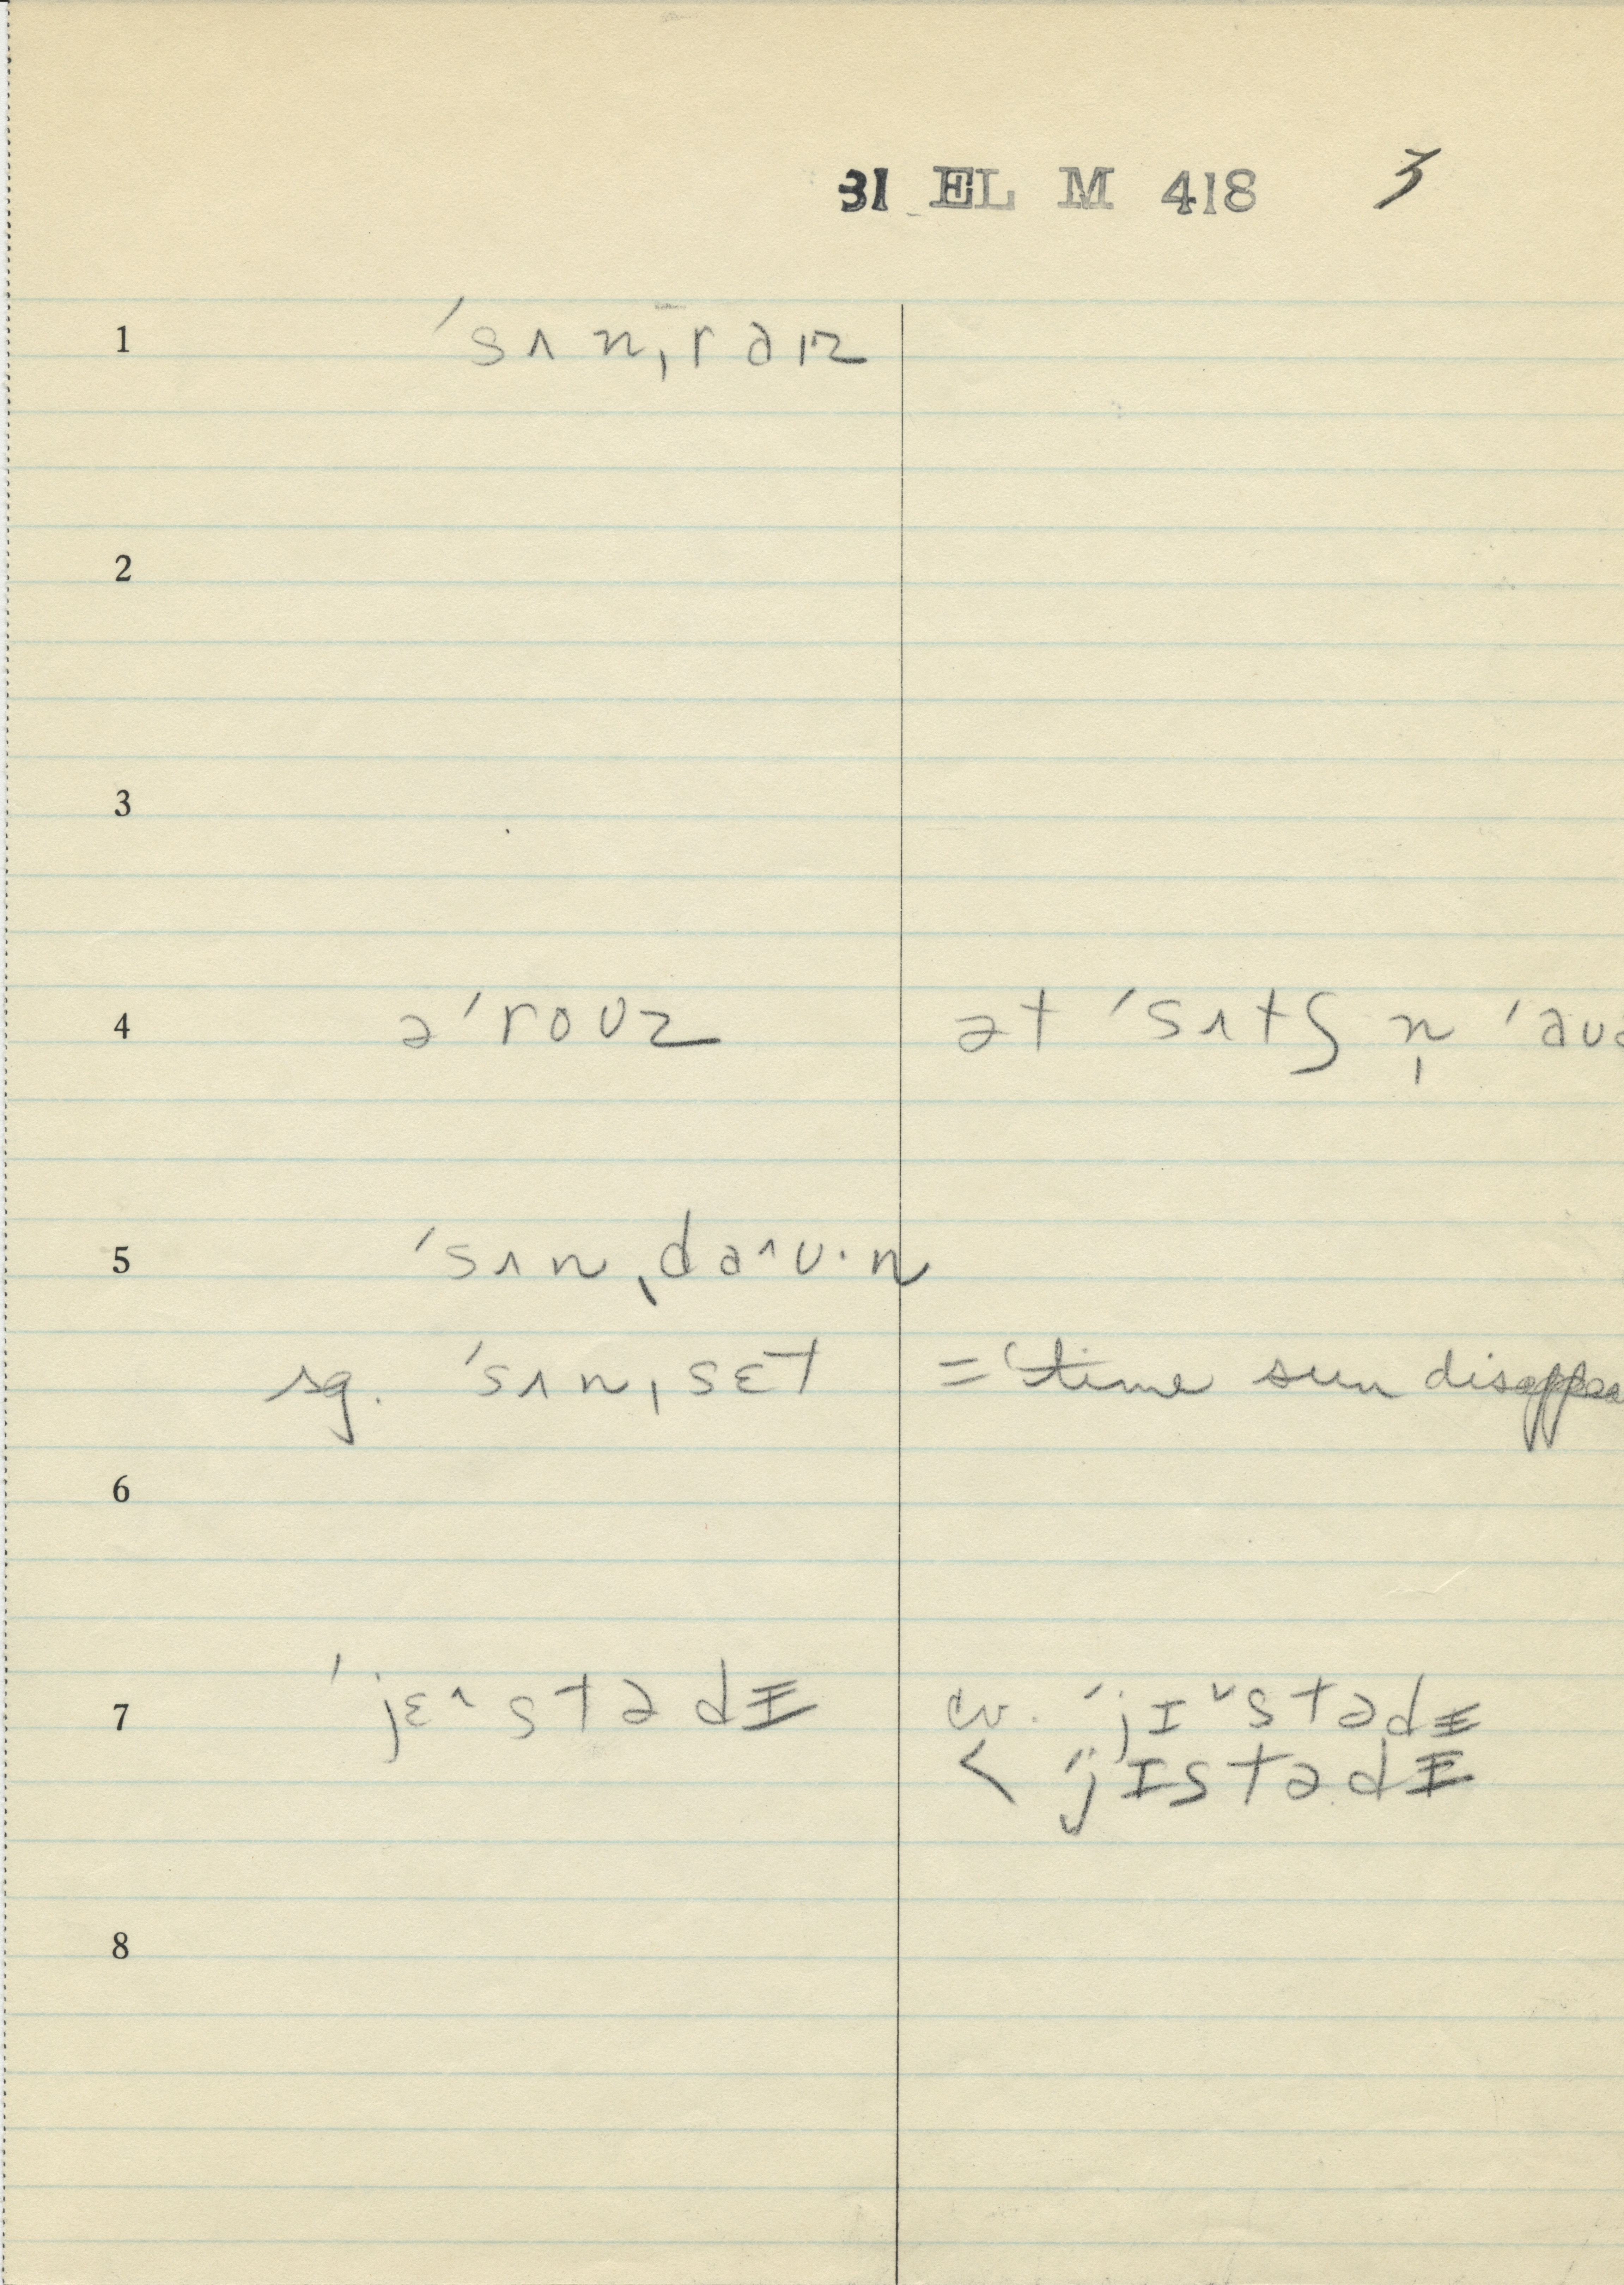 31 EL M 418 3
1 ˈsʌnˌraɪz
2
3
4 əˈroʊz ət ˈsʌtʃ n̩ ˈaʊə
5 ˈsʌnˌda˄ʊ·n
sg. ˈsʌnˌsɛt = ‘time sun disappea
6
7 ˈjɛ˄stədɪ cv. ˈjɪ˅stədɪ
< ˈjɪstədɪ
8